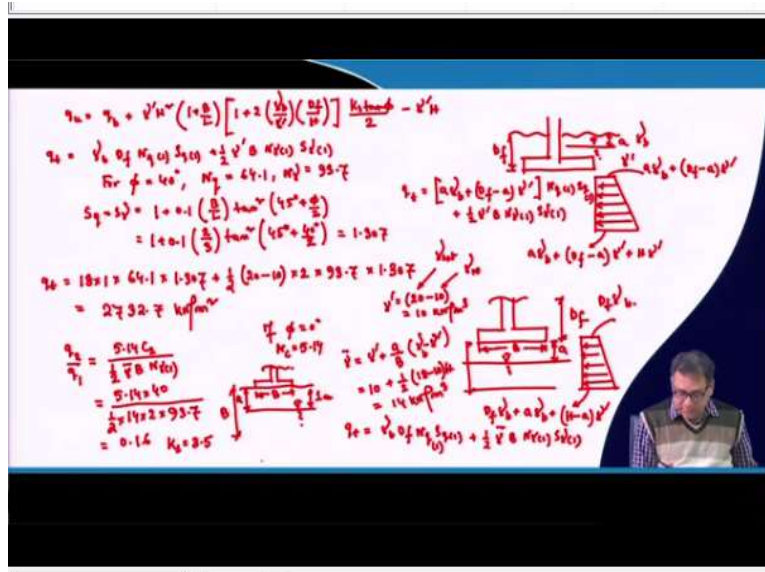 qu = qb + γ'H² (1+B/L) [1+2 (γb/γ') (Df/H)] Ks tanφ/2 - γ'H
qt = γb Df Nq(1) Sq(1) + 1/2 γ' B Nγ(1) Sγ(1)
For φ = 40°, Nq = 64.1, Nγ = 93.7
Sq = Sγ = 1 + 0.1 (B/L) tan² (45° + φ/2)
= 1 + 0.1 (2/3) tan² (45° + 40°/2) = 1.307
qt = 18×1× 64.1 × 1.307 + 1/2 (20-10) × 2 × 93.7 × 1.307
= 2732.7 kN/m²
q2/q1 = 5.14 C2 / 1/2 γ̄ B Nγ(1)
= 5.14×40 / 1/2 ×14×2×93.7
= 0.16 Ks = 3.5
If φ = 0°
Nc = 5.14
B
a
B
1m
Df
a γb
γ'
aγb + (Df-a)γ'
qt = [aγb + (Df-a)γ'] Nq(1) Sq(1)
+ 1/2 γ' B Nγ(1) Sγ(1)
aγb + (Df-a)γ' + Hγ'
γsat
γw
γ' = (20-10)
= 10 kN/m³
Df
Dfγb
B
a
γ̄ = γ' + a/B (γb-γ')
= 10 + 1/2 (18-10)
= 14 kN/m³
Dfγb + aγb + (H-a)γ'
qt = γb Df Nq(1) Sq(1) + 1/2 γ̄ B Nγ(1) Sγ(1)